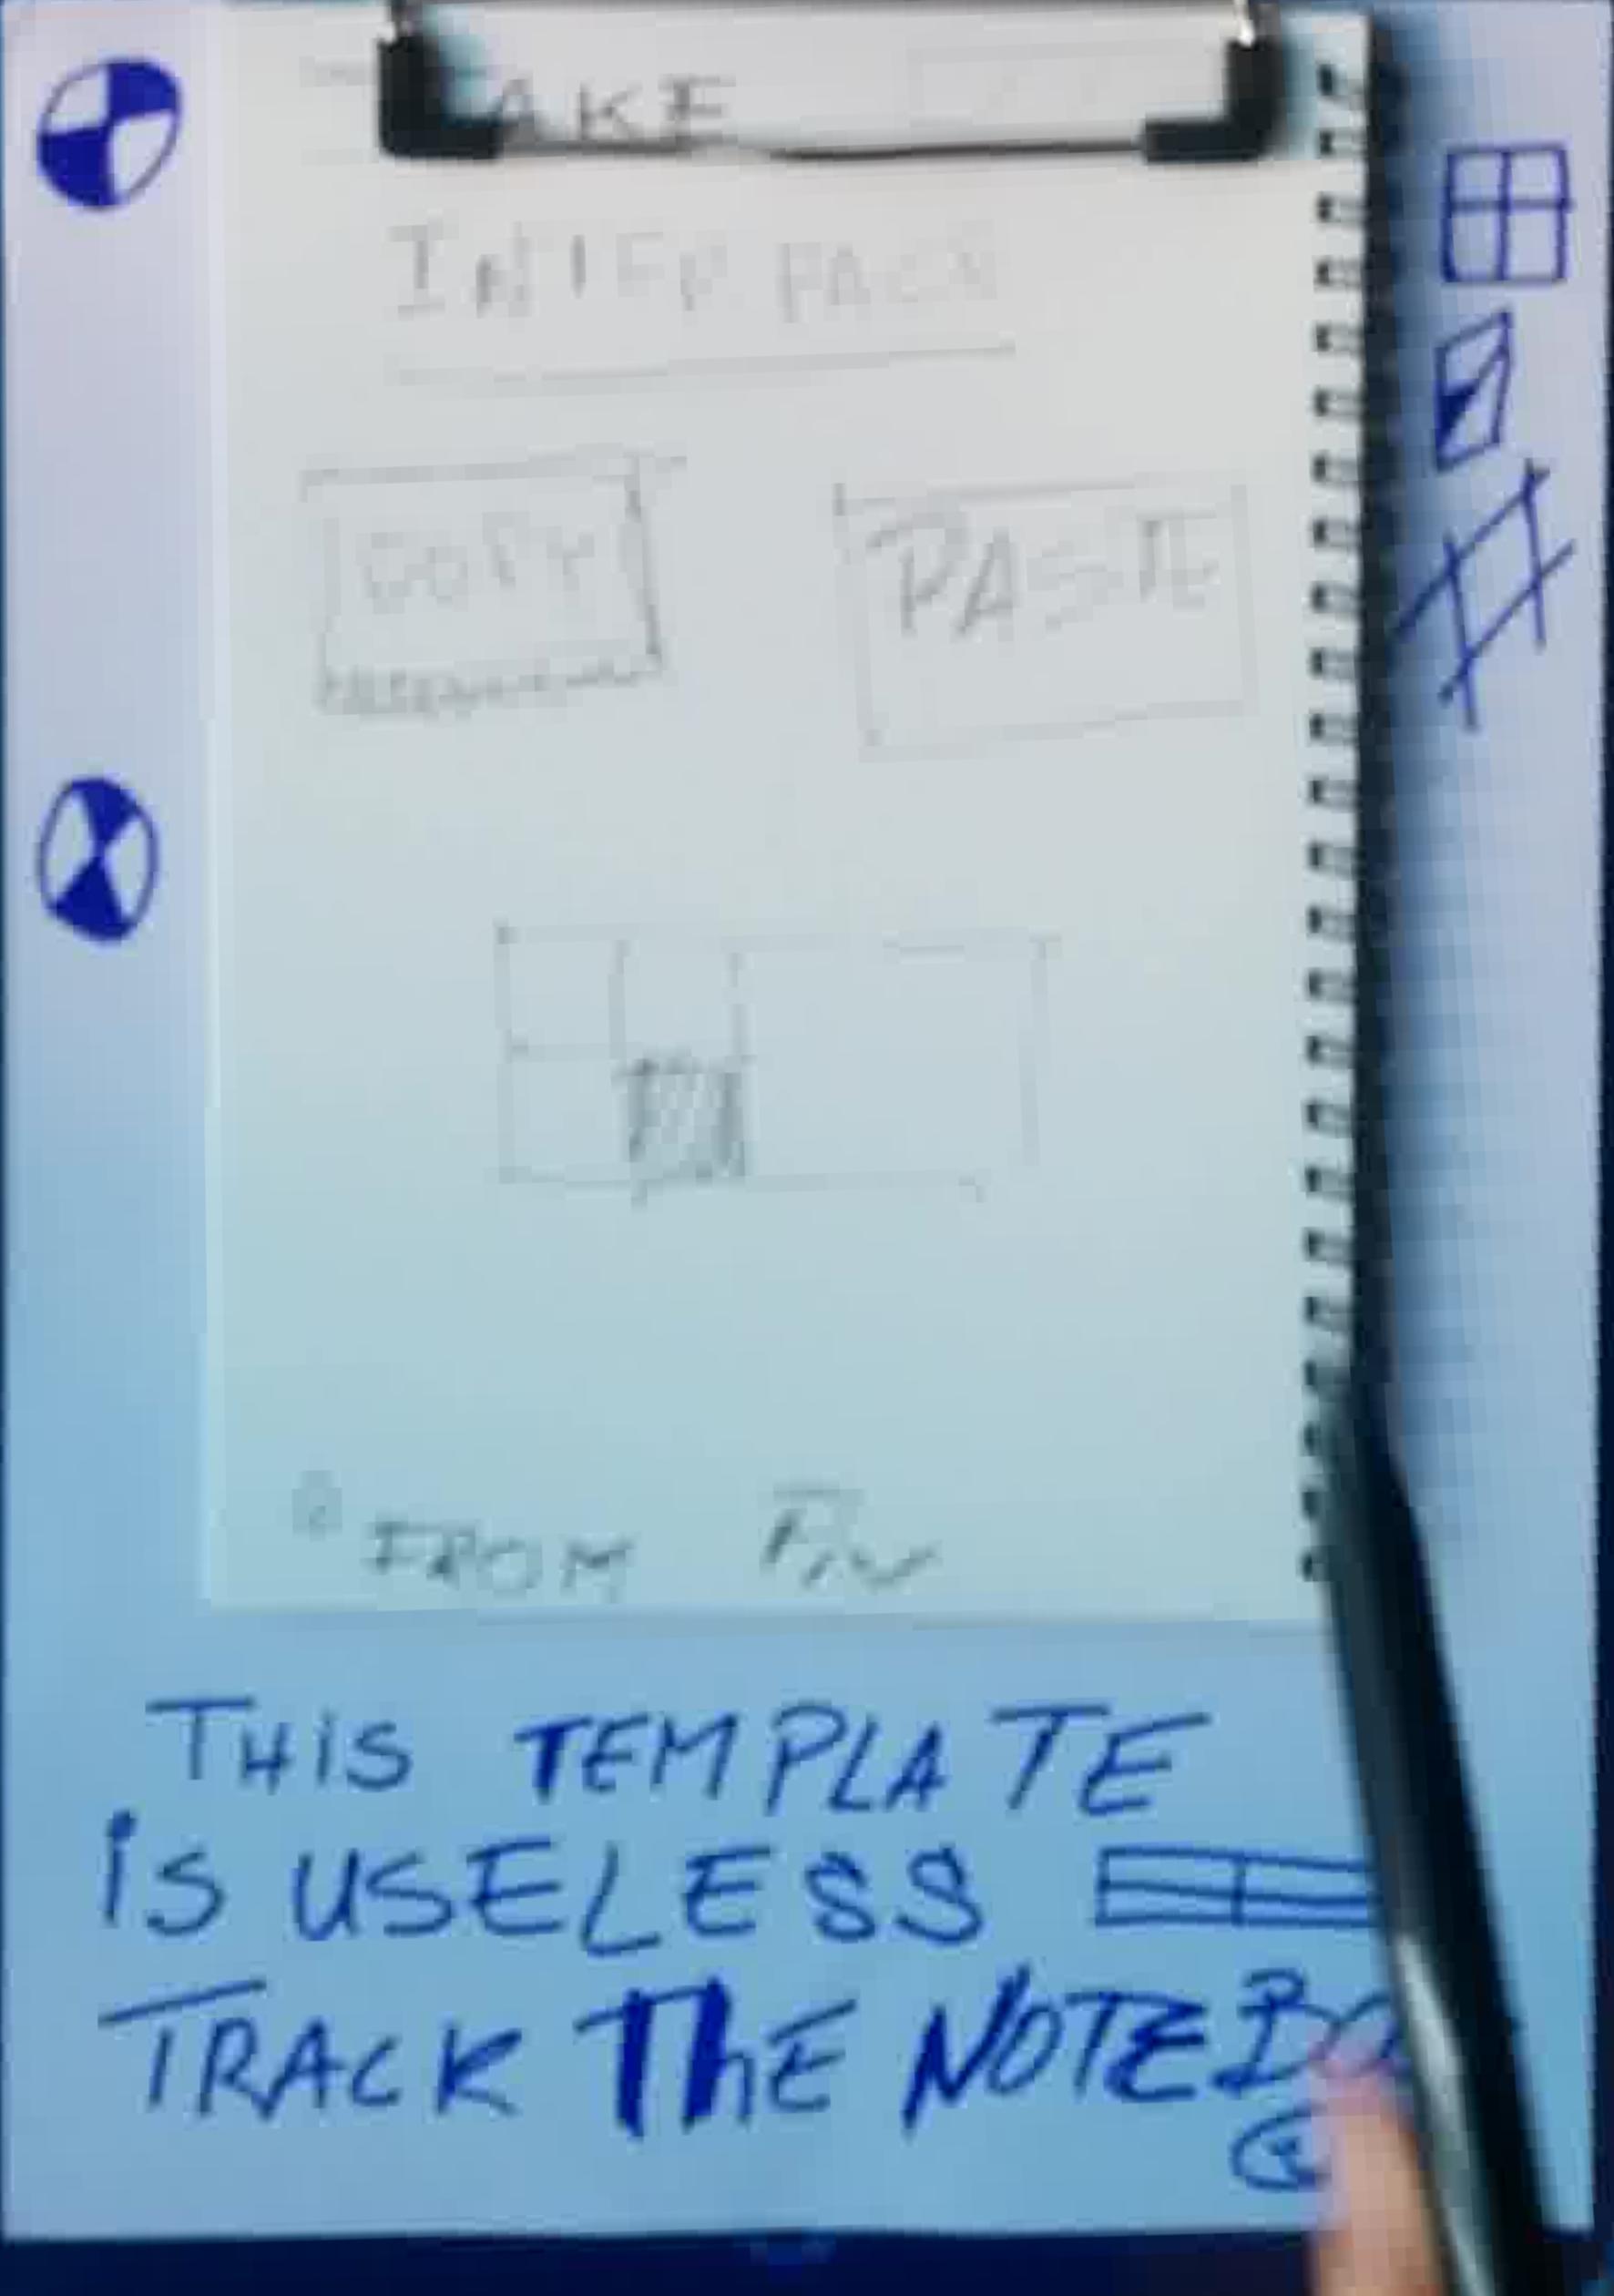 AKE
INTERFACE
COPY PASTE
FROM
THIS TEMPLATE
iS USELESS
TRACK ThE NOTEBO